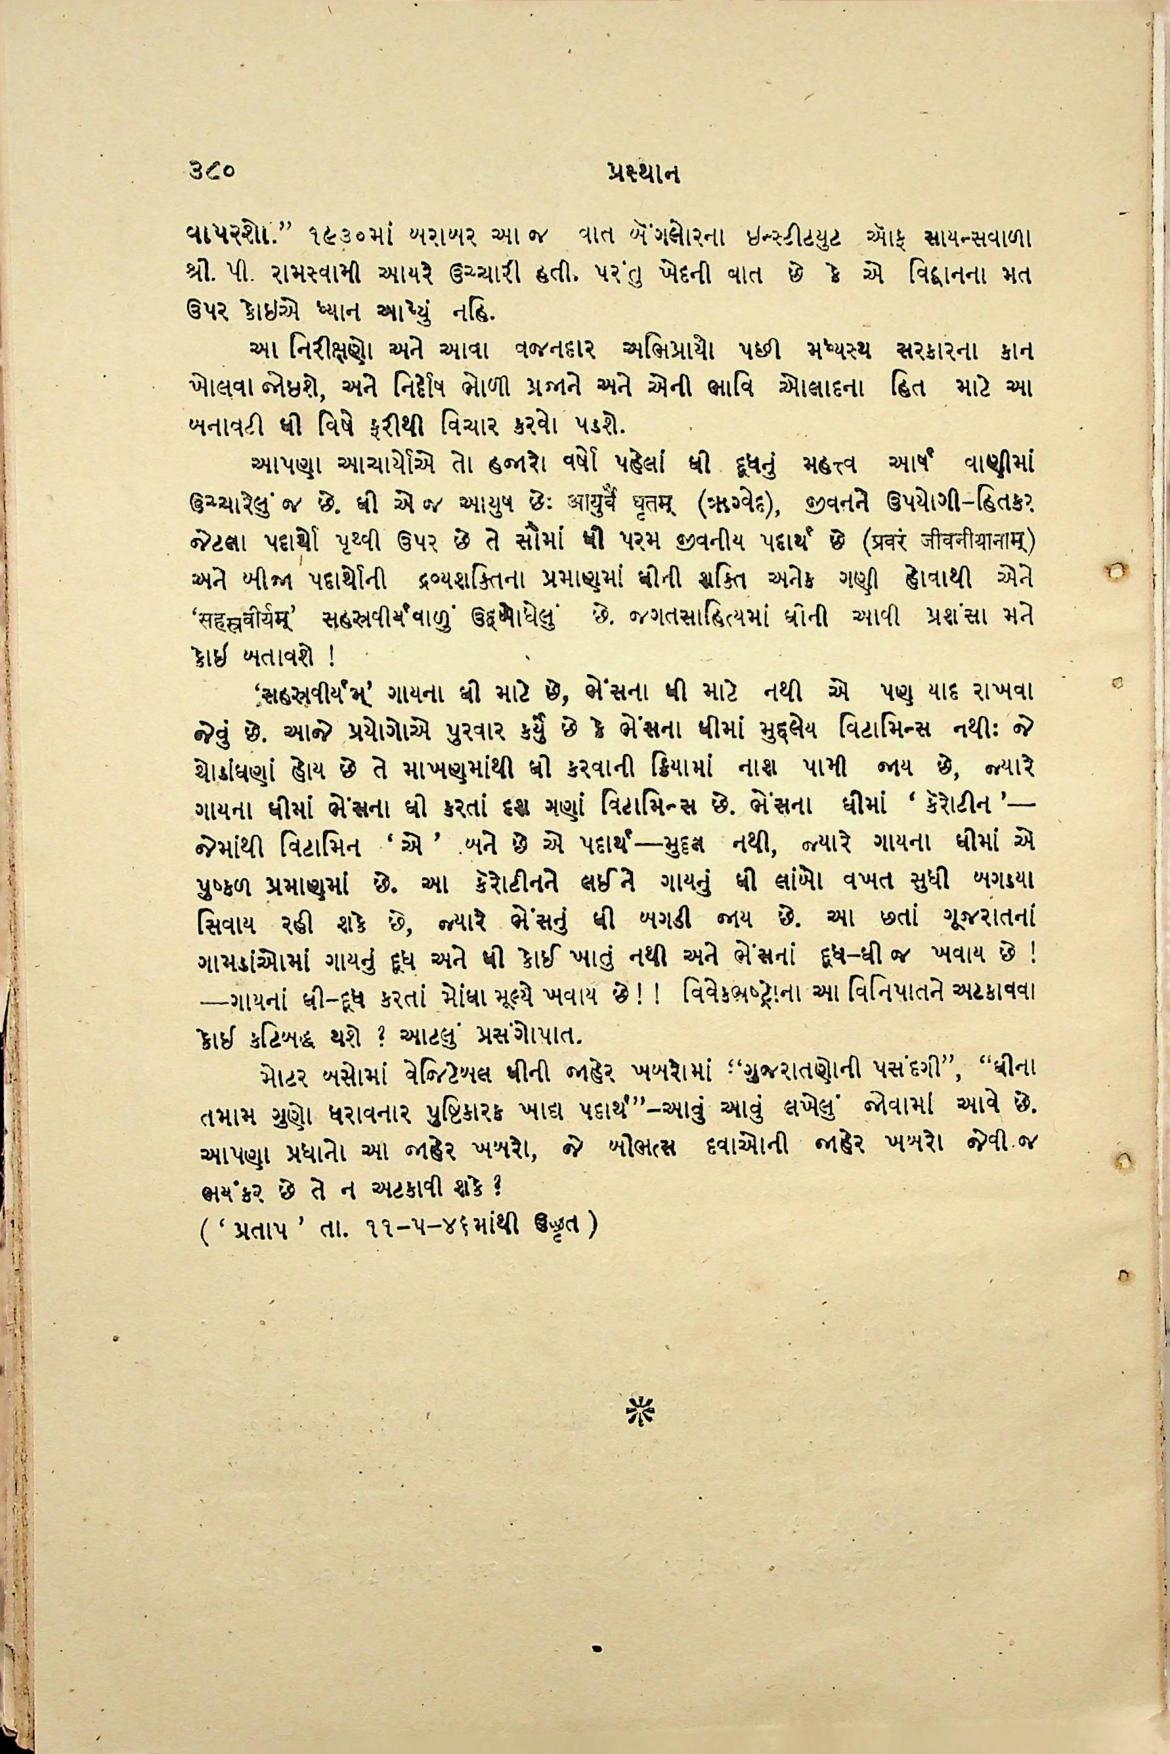 ૩૮૦
પ્રસ્થાન
વાપરશો.” ૧૯૩૦માં બરાબર આ જ વાત બેંગલોરના ઇન્સ્ટીટ્યુટ ઑફ સાયન્સવાળા
શ્રી. પી. રામસ્વામી આયરે ઉચ્ચારી હતી. પરંતુ ખેદની વાત છે કે એ વિદ્વાનના મત
ઉપર કોઇએ ધ્યાન આપ્યું નહિ.
આ નિરીક્ષણો અને આવા વજનદાર અભિપ્રાયો પછી મધ્યસ્થ સરકારના કાન
ખોલવા જોઇશે, અને નિર્દોષ ભોળી પ્રજાને અને એની ભાવિ ઓલાદના હિત માટે આ
બનાવટી ઘી વિષે ફરીથી વિચાર કરવો પડશે.
આપણા આચાર્યોએ તો હજારો વર્ષો પહેલાં ઘી દૂધનું મહત્ત્વ આર્ષ વાણીમાં
ઉચ્ચારેલું જ છે. ઘી એ જ આયુષ છેઃ आयुर्वै घृतम् (ઋગ્વેદ), જીવનને ઉપયોગી–હિતકર
જેટલા પદાર્થો પૃથ્વી ઉપર છે તે સૌમાં ઘી પરમ જીવનીય પદાર્થ છે (प्रवरं जीवनीयानाम्)
અને બીજા પદાર્થોની દ્રવ્યશક્તિના પ્રમાણમાં ઘીની શક્તિ અનેક ગણી હોવાથી એને
‘सहस्रवीर्यम्’ સહસ્રવીર્યવાળું ઉદ્બોધેલું છે. જગતસાહિત્યમાં ઘીની આવી પ્રશંસા મને
કોઇ બતાવશે !
‘સહસ્રવીર્યમ્’ ગાયના ઘી માટે છે, ભેંસના ઘી માટે નથી એ પણ યાદ રાખવા
જેવું છે. આજે પ્રયોગોએ પુરવાર કર્યું છે કે ભેંસના ઘીમાં મુદ્દલેય વિટામિન્સ નથીઃ જે
થોડાંઘણાં હોય છે તે માખણમાંથી ઘી કરવાની ક્રિયામાં નાશ પામી જાય છે, જ્યારે
ગાયના ઘીમાં ભેંસના ઘી કરતાં દશ ગણાં વિટામિન્સ છે. ભેંસના ઘીમાં ‘ કૅરોટીન ’—
જેમાંથી વિટામિન ‘ એ ’ બને છે એ પદાર્થ—મુદ્દલ નથી, જ્યારે ગાયના ઘીમાં એ
પુષ્કળ પ્રમાણમાં છે. આ કૅરોટીનને લઈને ગાયનું ઘી લાંબો વખત સુધી બગડ્યા
સિવાય રહી શકે છે, જ્યારે ભેંસનું ઘી બગડી જાય છે. આ છતાં ગૂજરાતનાં
ગામડાંઓમાં ગાયનું દૂધ અને ઘી કોઈ ખાતું નથી અને ભેંસનાં દૂધ–ઘી જ ખવાય છે !
—ગાયનાં ઘી–દૂધ કરતાં મોંઘા મૂલ્યે ખવાય છે!! વિવેકભ્રષ્ટોના આ વિનિપાતને અટકાવવા
કોઇ કટિબદ્ધ થશે ? આટલું પ્રસંગોપાત.
મોટર બસોમાં વેજિટેબલ ઘીની જાહેર ખબરોમાં “ગુજરાતણોની પસંદગી”, “ઘીના
તમામ ગુણો ધરાવનાર પુષ્ટિકારક ખાદ્ય પદાર્થ”–આવું આવું લખેલું જોવામાં આવે છે.
આપણા પ્રધાનો આ જાહેર ખબરો, જે બીભત્સ દવાઓની જાહેર ખબરો જેવી જ
ભયંકર છે તે ન અટકાવી શકે ?
( ‘ પ્રતાપ ’ તા. ૧૧–૫–૪૬માંથી ઉદ્ધૃત )